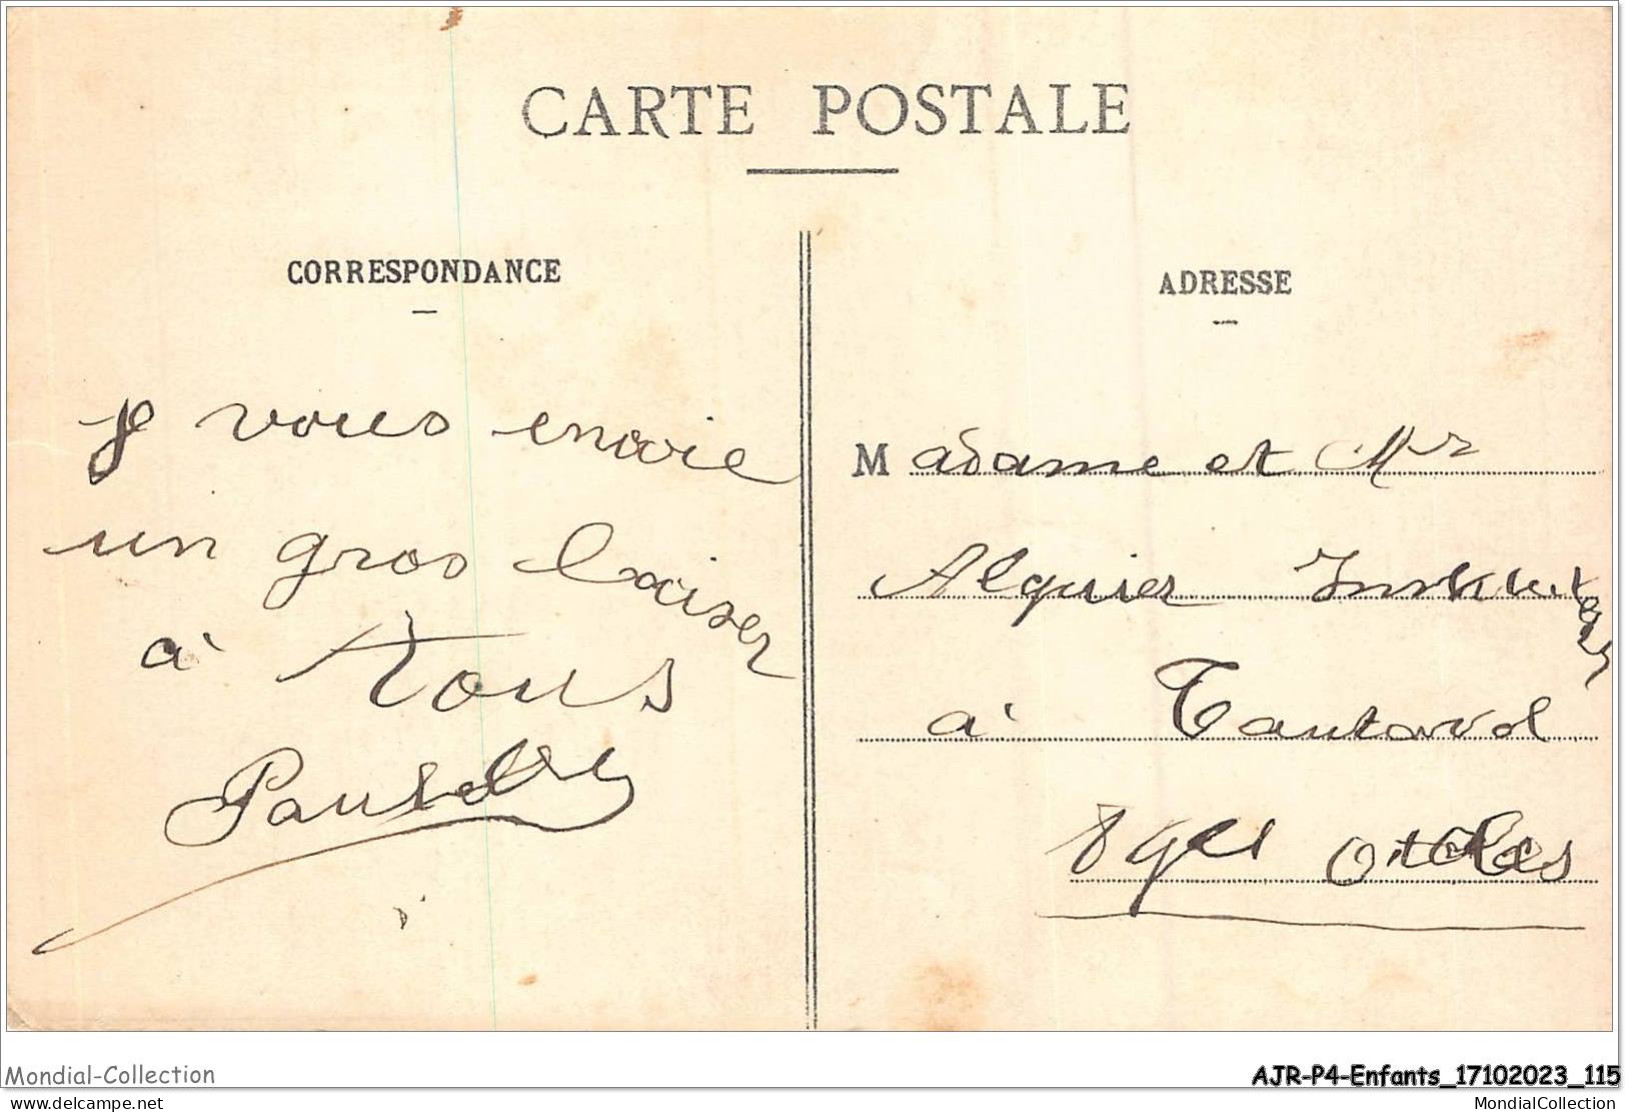 CARTE POSTALE
CORRESPONDANCE
je vous envoie
un gros baiser
à tous
ADRESSE
Madame et Mr
Alquier Instituteurs
à Tautavel
Pyrées Otales
Mondial-Collection
AJR-P4-Enfants_17102023_115
delcampe.net
MondialCollection